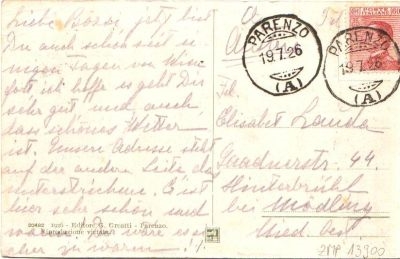 Liebe Bozsi, jetzt bist
Du auch schon seit ei
nigen Tagen von
fort ich hoffe es geht Dir
sehr gut und auch
dass schönes Wetter
ist. Unsere Adresse steht
auf der andern Seite da
unterstrichen. Es ist
hier sehr schön und
eher zu warm!!
20462 1926 - Editore G. Greatti - Parenzo.
Riproduzione vietata
PARENZO
19.7.26
(A)
PARENZO
19.7.26
(A)
Frl.
Elisabet Landa
44
Hinterbrühl
bei Mödling
Nied. Öst.
2MP 13900